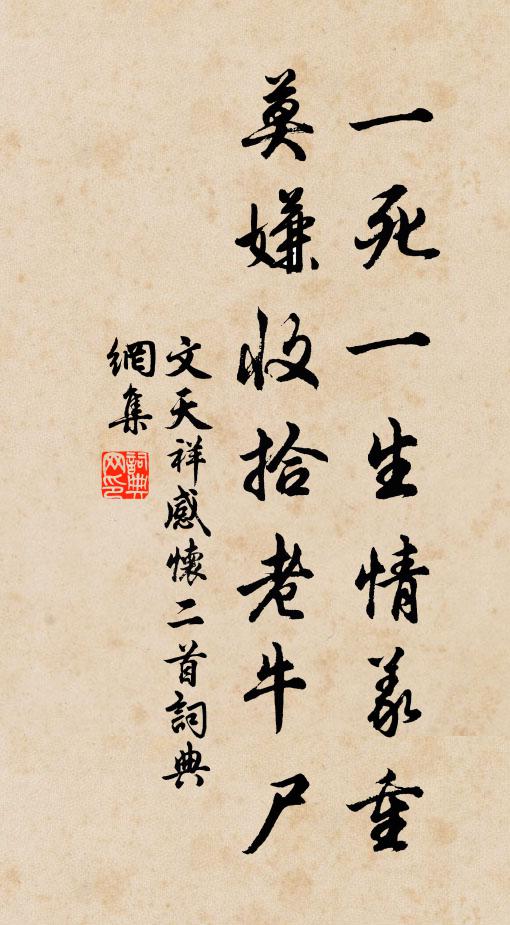 一死一生情義重
莫嫌收拾老牛尸
文天祥感懷二首詞典
網集
詞典
网印